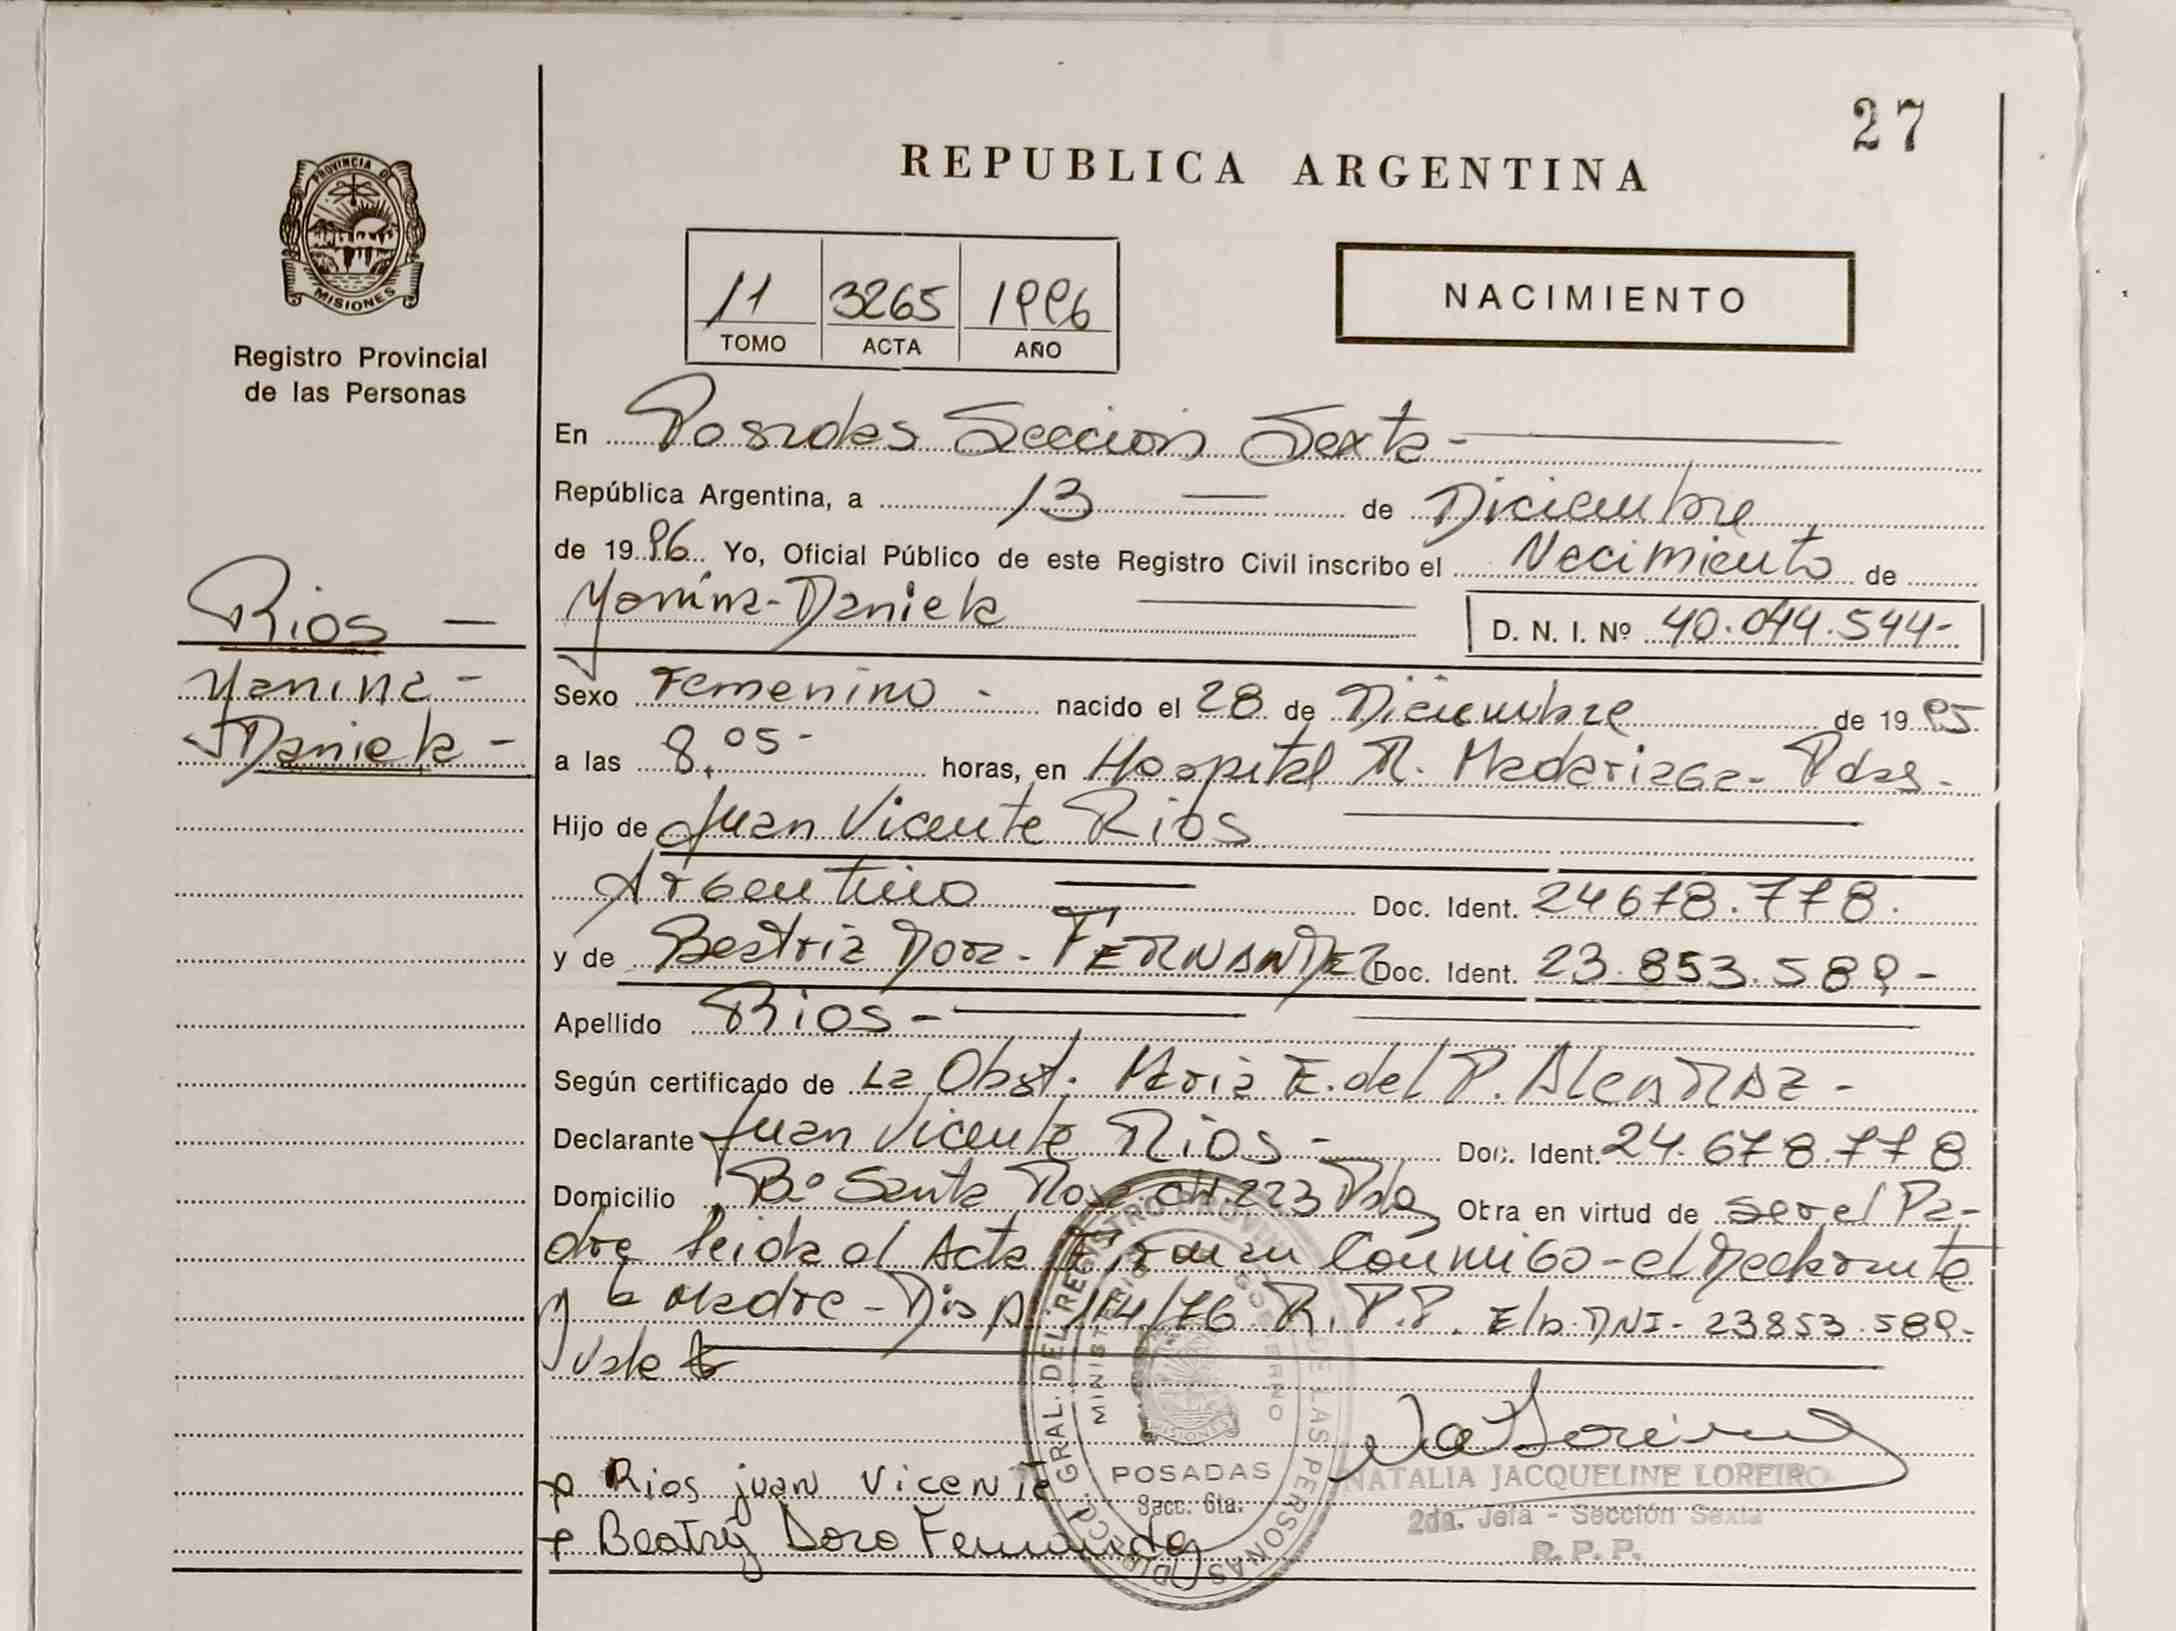 27
REPUBLICA ARGENTINA
PROVINCIA DE
MISIONES
Registro Provincial
de las Personas
11 3265 1996
TOMO ACTA AÑO
NACIMIENTO
En Posadas Seccion Sexta -
República Argentina, a 13 de Diciembre
de 1996 Yo, Oficial Público de este Registro Civil inscribo el Nacimiento de
Yanina - Daniela
D. N. I. Nº 40.044.544-
Rios -
Yanina -
Daniela -
Sexo Femenino - nacido el 28 de Diciembre de 1995
a las 8,05 - horas, en Hospital R. Madariaga - Pdas -
Hijo de Juan Vicente Rios
Argentino Doc. Ident. 24678.778.
y de Beatriz Dora - FERNANDEZ Doc. Ident. 23.853.589 -
Apellido Rios -
Según certificado de La Obst. Maria E. del P. Alcaraz -
Declarante Juan Vicente Rios - Doc. Ident. 24.678.778
Domicilio Bº Santa Rosa ch. 223 Pdas Obra en virtud de ser el Pa-
dre leida el Acta Firman Conmigo - el Declarante
y la Madre - Disp. 114/76 R.P.P. E/b. DNI - 23853.589 -
Vale
Rios juan Vicente
Beatriz Dora Fernandez
DIREC. GRAL. DEL REGISTRO PROVINCIAL DE LAS PERSONAS
MINISTERIO GOBIERNO
MISIONES
POSADAS
Secc. 6ta.
NATALIA JACQUELINE LOREIRO
2da. Jefa - Sección Sexta
R. P. P.